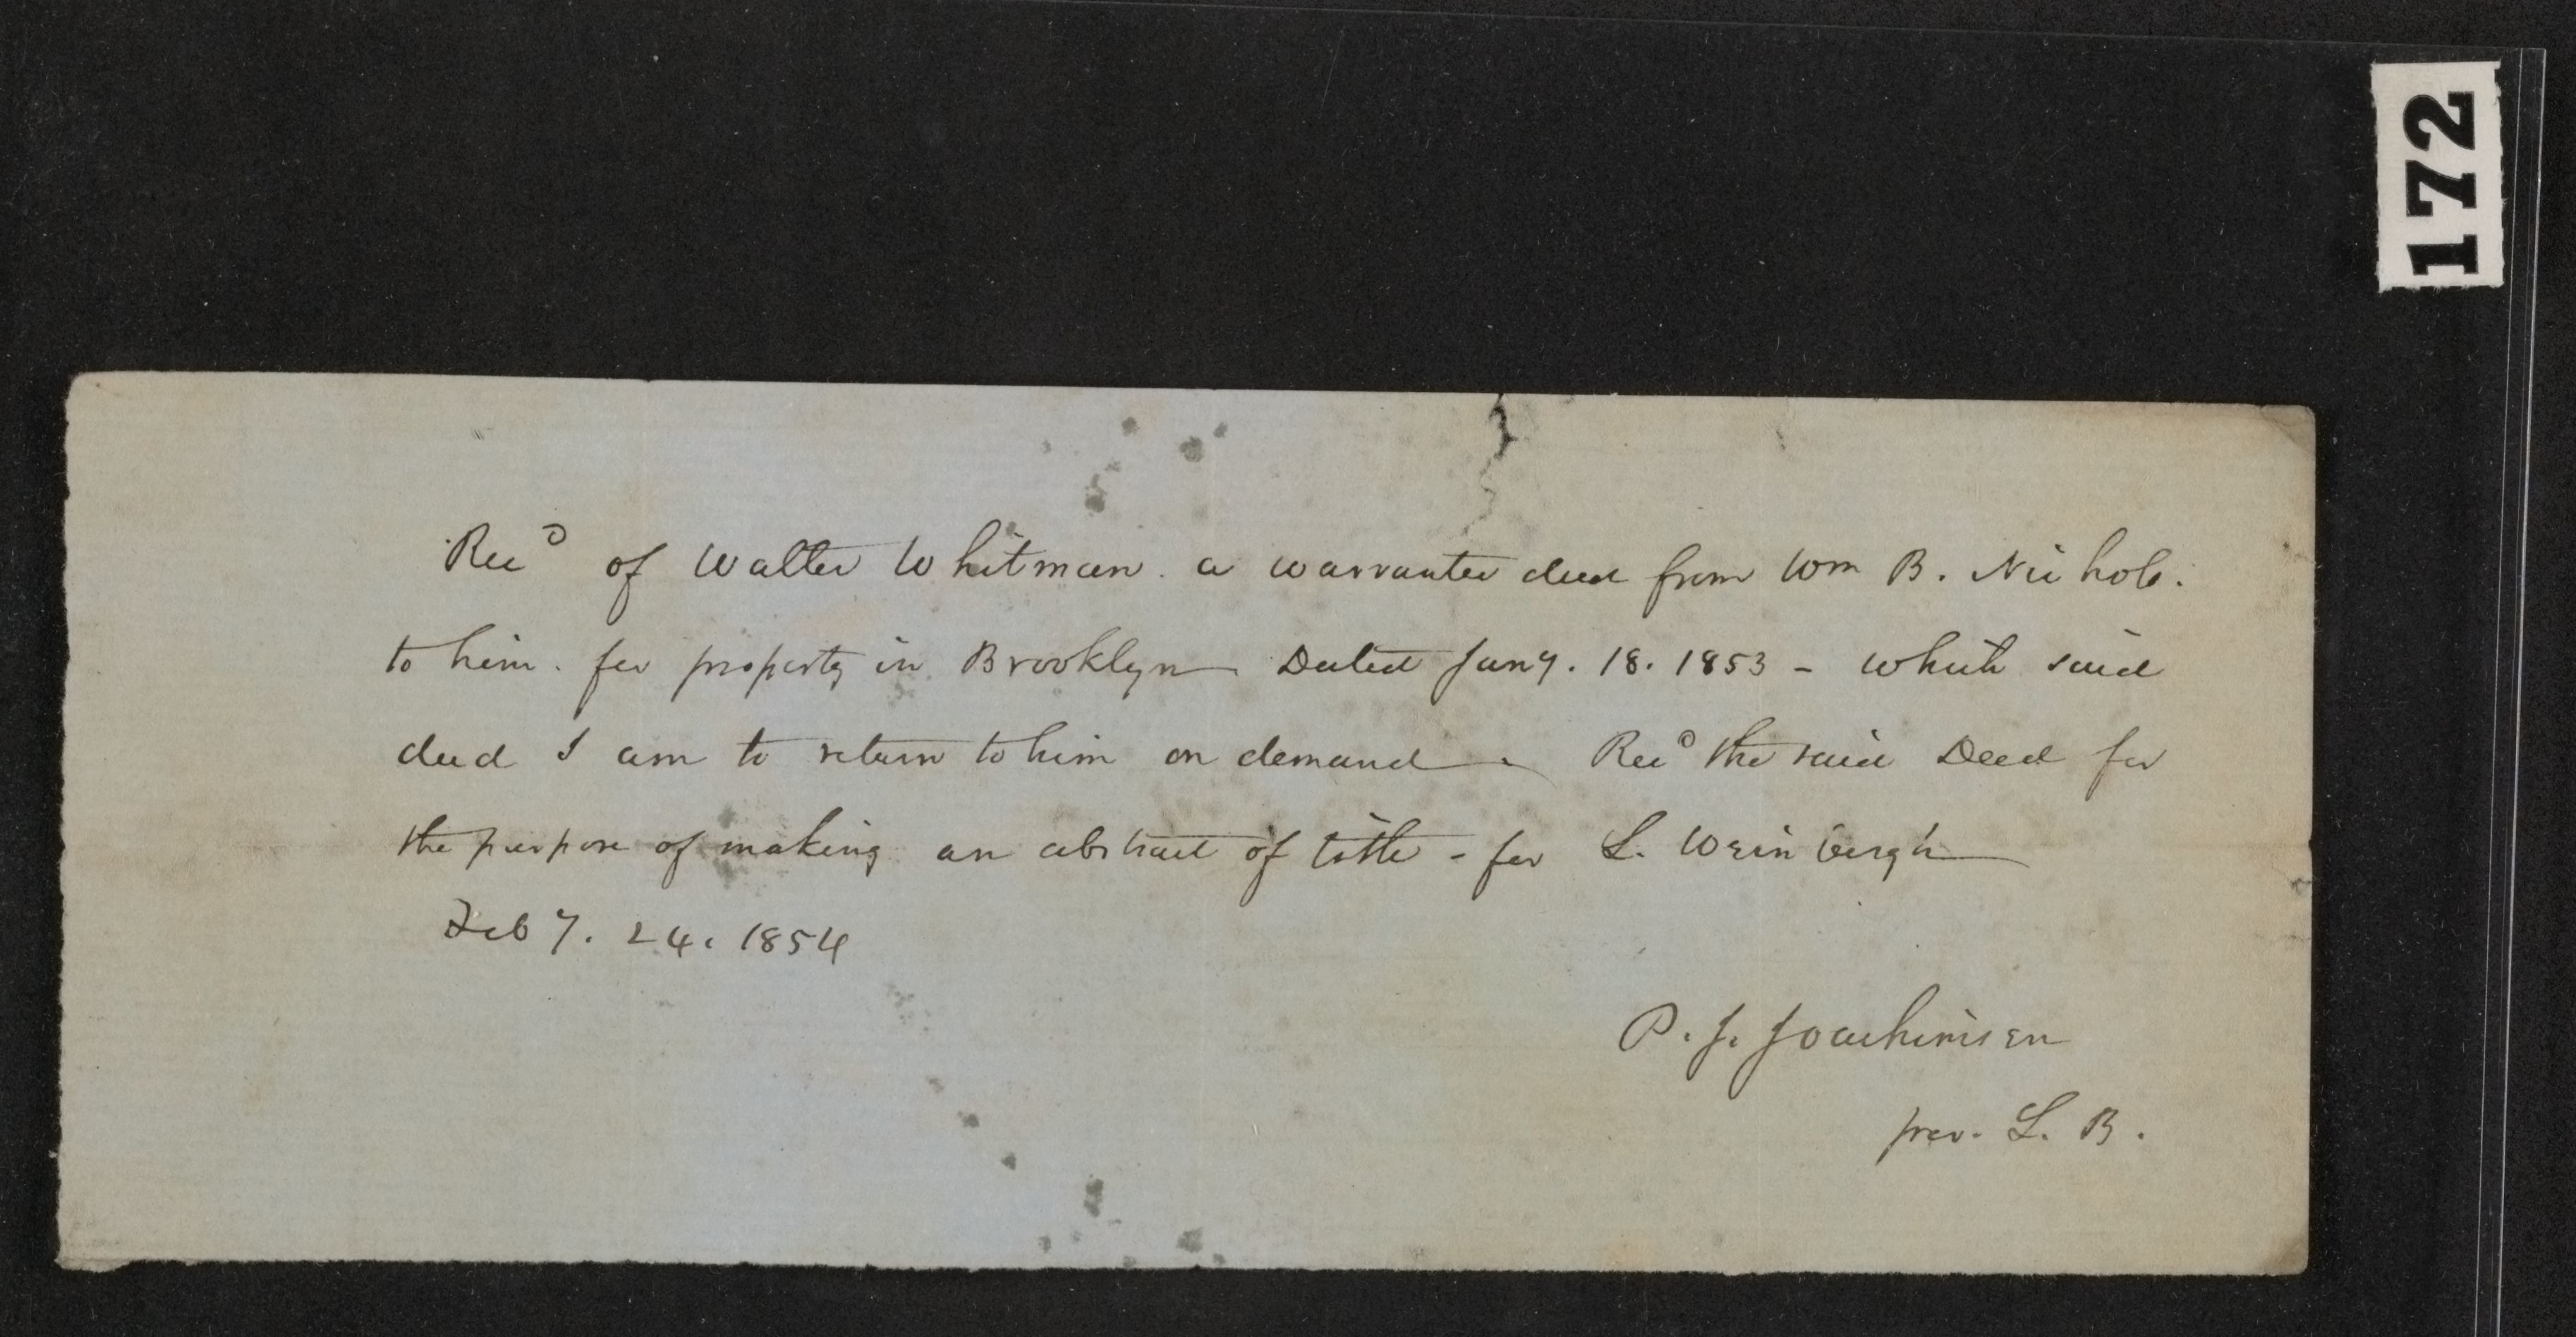 172
Rec<sup>d</sup> of Walter Whitman. a warrantee deed from Wm B. Nichols.
to him. for property in Brooklyn Dated Jany. 18. 1853 - which said
deed I am to return to him on demand. Rec<sup>d</sup> the said Deed for
the purpose of making an abstract of title - for L. Weinbergh
Feby. 24. 1854
P. J. Joachimsen
per. L. B.